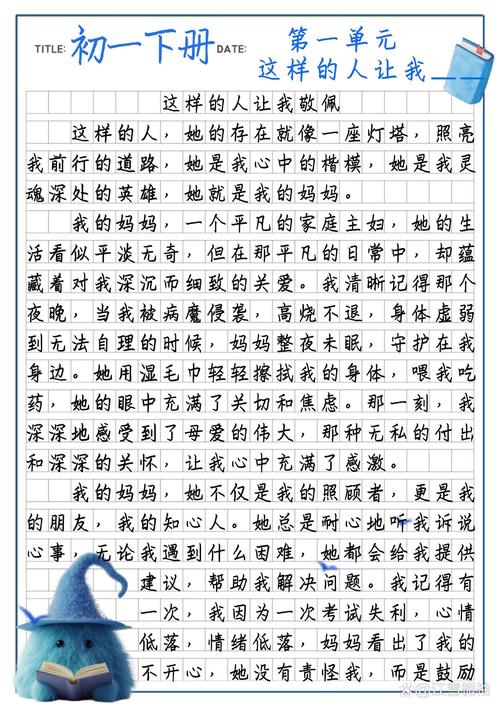 TITLE: 初一下册 DATE: 第一单元
这样的人让我___
这样的人让我敬佩
这样的人，她的存在就像一座灯塔，照亮
我前行的道路，她是我心中的楷模，她是我灵
魂深处的英雄，她就是我的妈妈。
我的妈妈，一个平凡的家庭主妇，她的生
活看似平淡无奇，但在那平凡的日常中，却蕴
藏着对我深沉而细致的关爱。我清晰记得那个
夜晚，当我被病魔侵袭，高烧不退，身体虚弱
到无法自理的时候，妈妈整夜未眠，守护在我
身边。她用湿毛巾轻轻擦拭我的身体，喂我吃
药，她的眼中充满了关切和焦虑。那一刻，我
深深地感受到了母爱的伟大，那种无私的付出
和深深的关怀，让我心中充满了感激。
我的妈妈，她不仅是我的照顾者，更是我
的朋友，我的知心人。她总是耐心地听我诉说
心事，无论我遇到什么困难，她都会给我提供
建议，帮助我解决问题。我记得有
一次，我因为一次考试失利，心情
低落，情绪低落，妈妈看出了我的
不开心，她没有责怪我，而是鼓励